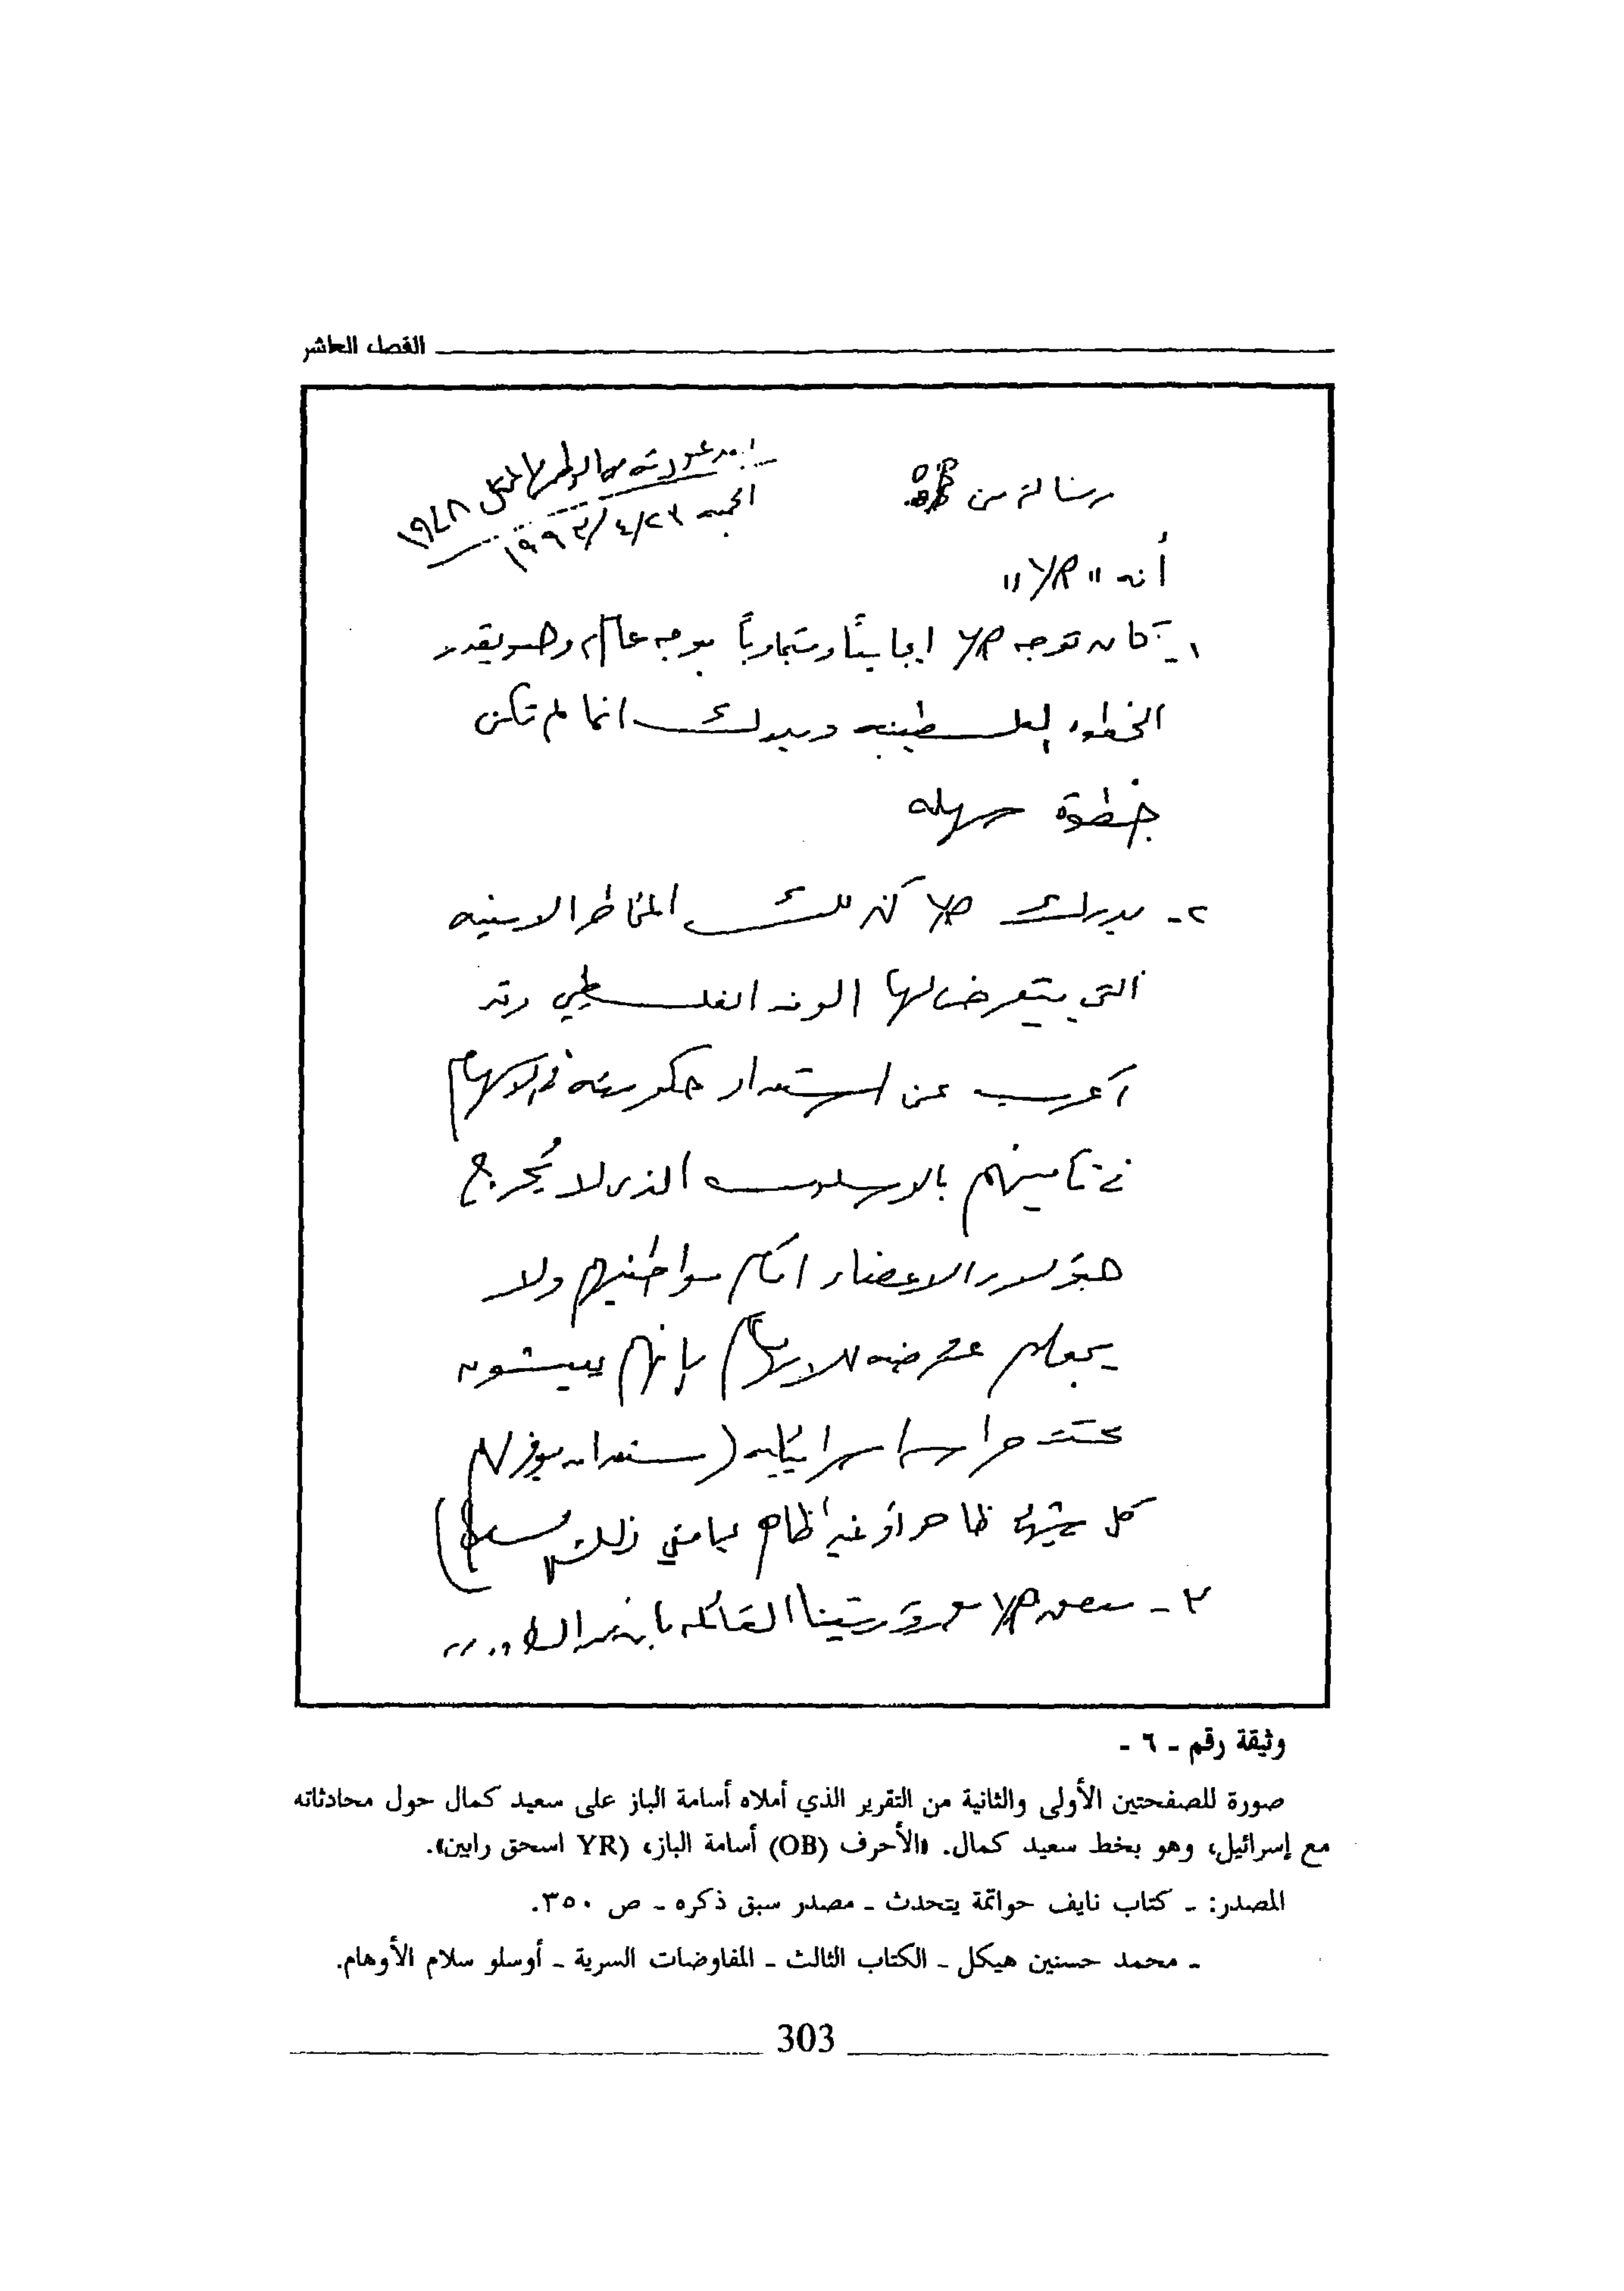 الفصل العاشر
رسالة من OB
بعد عودته من الوطن المحتل ١٩٤٨
الجمعه ٢٣/٤/١٩٩٣
أنه "YR"
١ـ كان توجه YR ايجابياً ومتجاوباً بوجه عام، وهو يقدر
الخطوه الفلسطينيه ويدرك انها لم تكن
خطوة سهله
٢ـ يدرك YR كذلك المخاطر الامنيه
التي يتعرض لها الوفد الفلسطيني وقد
أعرب عن استعداد حكومته في الاسهام
في تأمينهم بالاسلوب الذى لا يُحرج
هؤلاء الاعضاء امام مواطنيهم ولا
يجعلهم عرضه للاتهام بأنهم يعيشون
تحت حراسه اسرائيليه (مستعدان يوفر لهم
كل شيئ ظاهر أو غير ظاهر بما في ذلك
٣ـ YR رؤيتنا القائله بأن
وثيقة رقم ـ ٦ ـ
صورة للصفحتين الأولى والثانية من التقرير الذي أملاه أسامة الباز على سعيد كمال حول محادثاته
مع إسرائيل، وهو بخط سعيد كمال. «الأحرف (OB) أسامة الباز، (YR) اسحق رابين».
المصدر: ـ كتاب نايف حواتمة يتحدث ـ مصدر سبق ذكره ـ ص ٣٥٠.
ـ محمد حسنين هيكل ـ الكتاب الثالث ـ المفاوضات السرية ـ أوسلو سلام الأوهام.
303